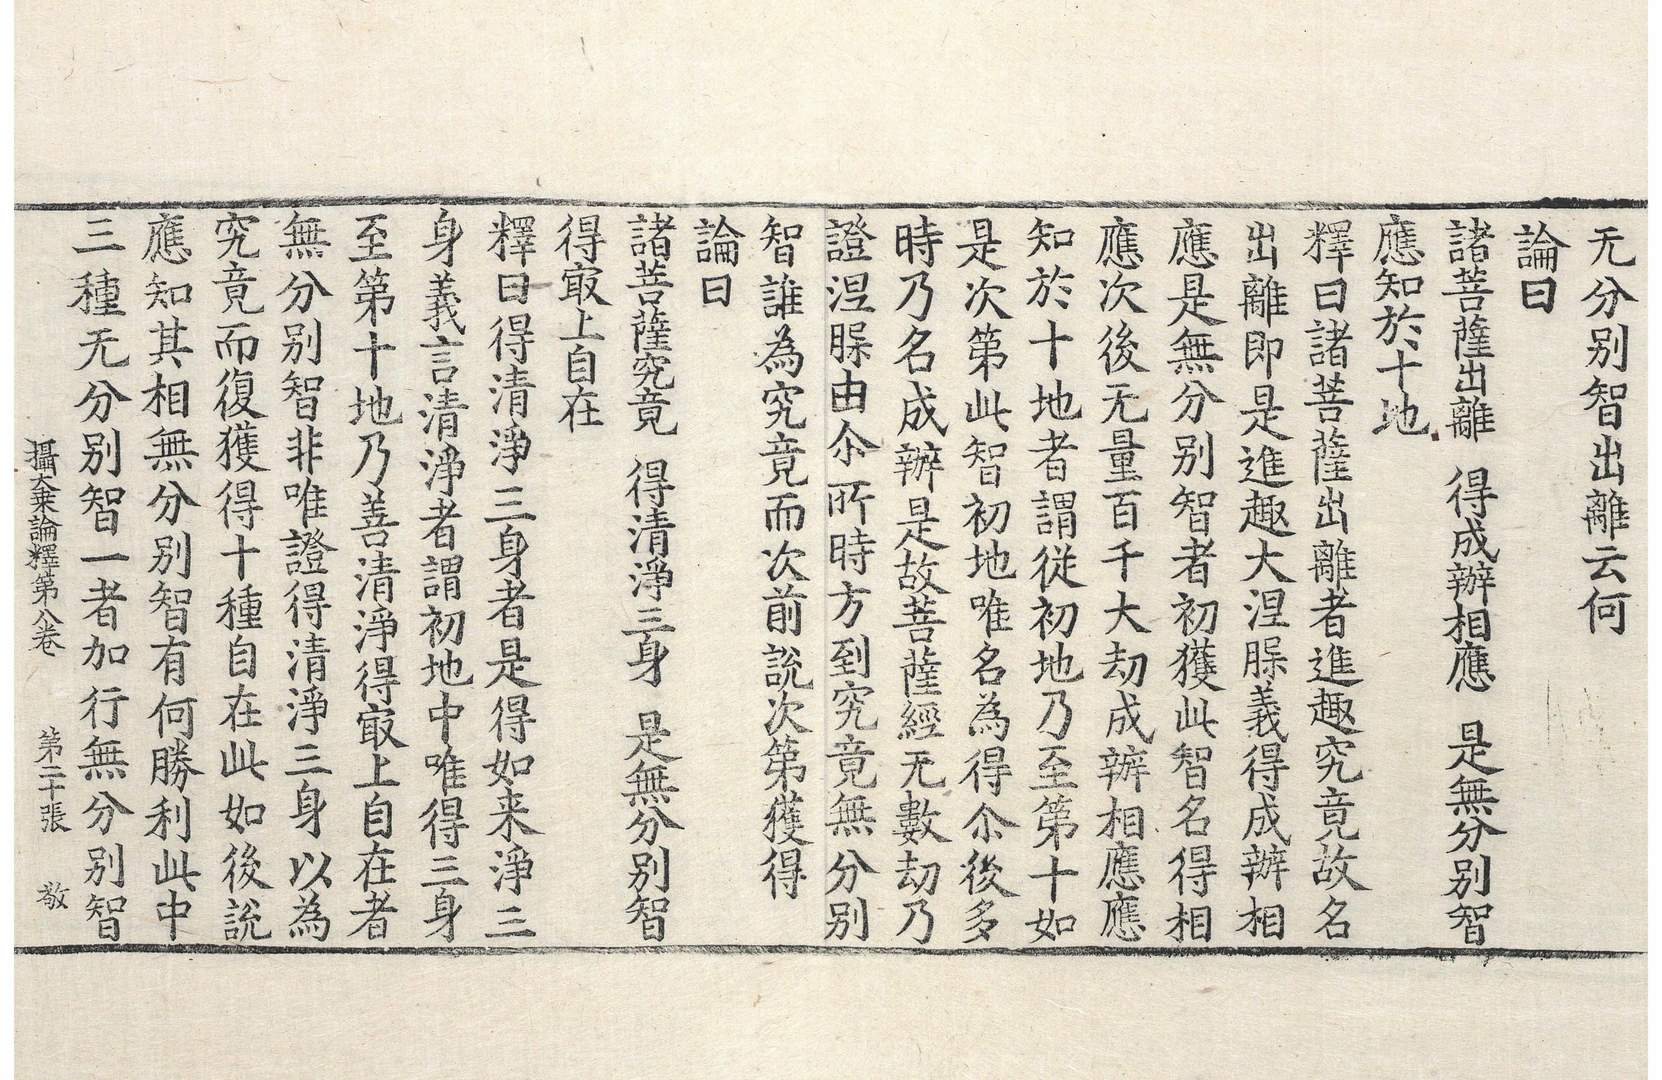 无分別智出離云何
論曰
諸菩薩出離　得成辦相應　是無分別智
應知於十地
釋曰諸菩薩出離者進趣究竟故名
出離即是進趣大涅槃義得成辦相
應是無分別智者初獲此智名得相
應次後无量百千大劫成辦相應應
知於十地者謂從初地乃至第十如
是次第此智初地唯名為得尒後多
時乃名成辦是故菩薩經无數劫乃
證涅槃由尒所時方到究竟無分別
智誰為究竟而次前說次第獲得
論曰
諸菩薩究竟　得清淨三身　是無分別智
得㝡上自在
釋曰得清淨三身者是得如来淨三
身義言清淨者謂初地中唯得三身
至第十地乃善清淨得㝡上自在者
無分別智非唯證得清淨三身以為
究竟而復獲得十種自在此如後說
應知其相無分別智有何勝利此中
三種无分別智一者加行無分別智
攝大乗論釋第八卷　第二十張　敬